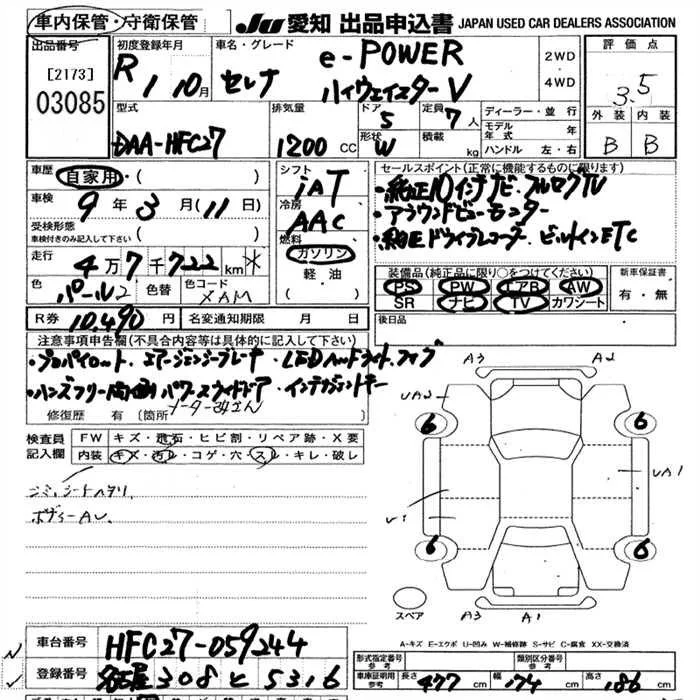 車内保管・守衛保管
JU 愛知 出品申込書 JAPAN USED CAR DEALERS ASSOCIATION
出品番号 [2173] 03085
初度登録年月 R 1 10月
車名・グレード セレナ e-POWER ハイウェイスターV
2WD・4WD
評価点 3.5
外装 内装
B B
型式 DAA-HFC27
排気量 1200 CC
ドア 5 形状 W
定員 7人 積載 kg
ディーラー・並行
モデル年式 年
ハンドル 左・右
車歴 自家用・( )
車検 9年3月(11日)
受検形態 車検付きのみ記入して下さい ( )
走行 4万7千722km
色 パール2 色替 色コード XAM
R券 10,490円 名変通知期限 月 日
シフト iAT
冷房 AAC
燃料 ガソリン 軽・油 ( )
セールスポイント(正常に機能するものに限ります)
・純正10インチナビ・フルセグTV
・アラウンドビューモニター
・純正ドライブレコーダー・ビルトインETC
装備品(純正品に限り○をつけてください) 新車保証書
PS PW エアB AW
SR ナビ TV カワシート 有・無
後日品
注意事項申告欄(不具合内容等は具体的に記入して下さい)
・プロパイロット・エマージェンシーブレーキ・LEDヘッドライト・フォグ
・ハンズフリー両側パワースライドドア・インテリジェントキー
修復歴 有 (箇所
検査員記入欄
FW キズ・飛石・ヒビ割・リペア跡・X要
内装 キズ・汚レ・コゲ・穴・スレ・キレ・破レ
シミ、シートヘタリ
ボディーAU、
A3 A2
UA2
6 6
UA1
6 6
スペア A3 A1
A-キズ E-エクボ U-凹み W-補修跡 S-サビ C-腐食 XX-交換済
車台番号 HFC27-059244
登録番号 名古屋 308 と 5316
形式指定番号 参考 類別区分番号 参考
車検証明細 参考 長さ 477cm 幅 174cm 高さ 186cm